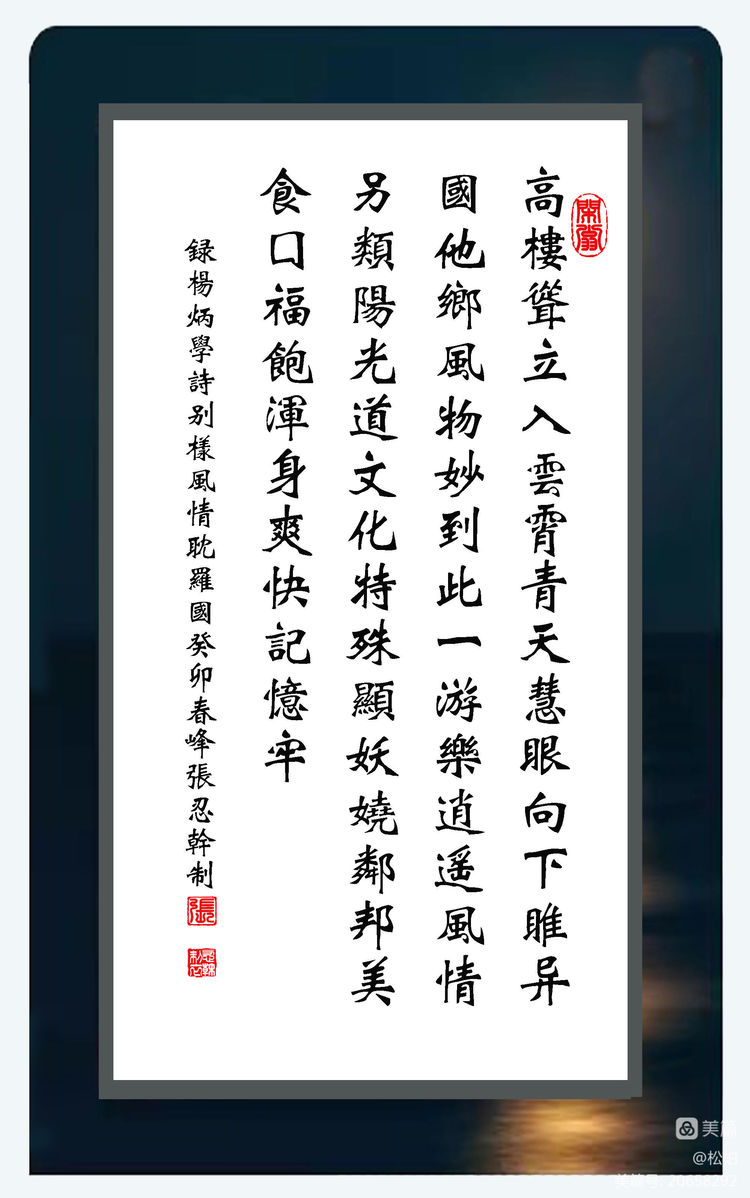 高樓聳立入雲霄青天慧眼向下睢异
國他鄉風物妙到此一游樂逍遥風情
另類陽光道文化特殊顯妖嬈鄰邦美
食口福飽渾身爽快記憶牢
録楊炳學詩别樣風情耽羅國癸卯春峰張忍幹制
張
美篇
@松
美篇号: 20658292